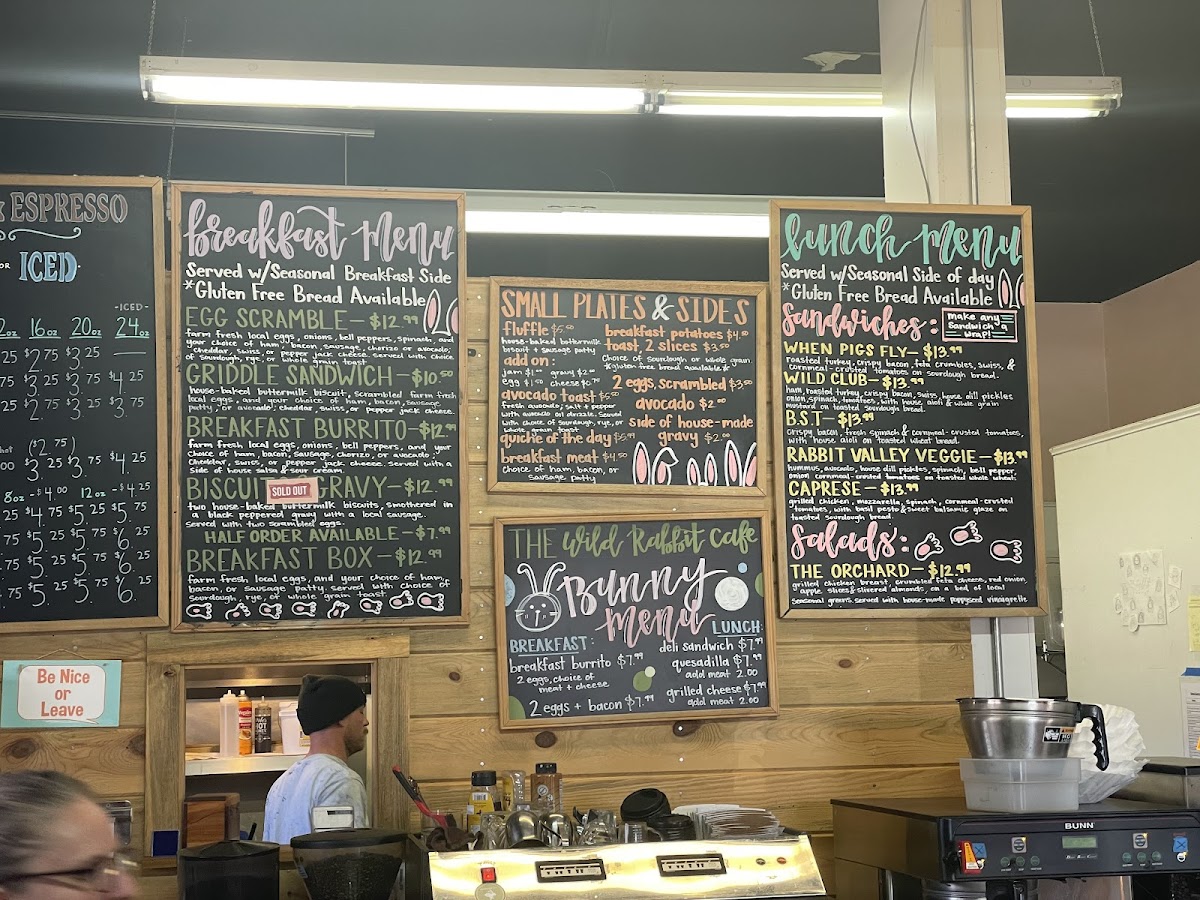 ESPRESSO
OR ICED
-ICED-
16oz 20oz 24oz
$2.75 $3.25
$3.25 $3.75 $4.25
$2.75 $3.25 $3.75
($2.75)
$3.25 $3.75 $4.25
8oz - $4.00 12oz - $4.25
$4.75 $5.25 $5.75
$5.25 $5.75 $6.25
$5.25 $5.75 $6.25
$5. $5.75 $6.25
Be Nice
or
Leave
breakfast menu
Served w/Seasonal Breakfast Side
*Gluten Free Bread Available
EGG SCRAMBLE - $12.99
farm fresh local eggs, onions, bell peppers, spinach, and
your choice of ham, bacon, sausage, chorizo or avocado.
cheddar, swiss, or pepper jack cheese. served with choice
of sourdough, rye, or whole grain toast.
GRIDDLE SANDWICH - $10.50
house-baked buttermilk biscuit, scrambled farm fresh
local eggs, and your choice of ham, bacon, sausage
patty, or avocado, cheddar, swiss, or pepper jack cheese.
BREAKFAST BURRITO - $12.99
farm fresh local eggs, onions, bell peppers, and your
choice of ham, bacon, sausage, chorizo, or avocado.
cheddar, swiss, or pepper jack cheese. served with a
side of house salsa & sour cream.
BISCUIT SOLD OUT GRAVY - $12.99
two house-baked buttermilk biscuits, smothered in
a black peppered gravy with a local sausage.
served with two scrambled eggs.
HALF ORDER AVAILABLE - $7.99
BREAKFAST BOX - $12.99
farm fresh, local eggs, and your choice of ham,
bacon, or sausage patty. served with choice of
sourdough, rye, or whole grain toast.
SMALL PLATES & SIDES
fluffle $5.50
house-baked buttermilk
biscuit + sausage patty
add on:
jam $1.00 gravy $2.00
egg $1.50 cheese $0.75
avocado toast $6.50
fresh avocado, salt + pepper
with avocado oil drizzle. Served
with choice of sourdough, rye, or
whole grain toast
quiche of the day $6.99
breakfast meat $4.50
choice of ham, bacon, or
sausage patty
breakfast potatoes $4.50
toast, 2 slices $3.50
choice of sourdough or whole grain.
*gluten-free bread available*
2 eggs, scrambled $3.50
avocado $2.00
side of house-made
gravy $2.00
THE Wild Rabbit Cafe
Bunny
menu
BREAKFAST:
breakfast burrito $7.99
2 eggs, choice of
meat + cheese
2 eggs + bacon $7.99
LUNCH:
deli sandwich $7.99
quesadilla $7.99
add meat 2.00
grilled cheese $7.99
add meat 2.00
lunch menu
Served w/Seasonal Side of day
*Gluten Free Bread Available
Sandwiches: make any
sandwich a
wrap!
WHEN PIGS FLY - $13.99
roasted turkey, crispy bacon, feta crumbles, swiss, &
cornmeal-crusted tomatoes on sourdough bread.
WILD CLUB - $13.99
ham, roasted turkey, crispy bacon, swiss, house dill pickles
onion, spinach, tomatoes, with house aioli & whole grain
mustard on toasted sourdough bread.
B.S.T - $13.99
crispy bacon, fresh spinach & cornmeal-crusted tomatoes,
with house aioli on toasted wheat bread.
RABBIT VALLEY VEGGIE - $13.99
hummus, avocado, house dill pickles, spinach, bell pepper,
onion, cornmeal-crusted tomatoes on toasted whole wheat.
CAPRESE - $13.99
grilled chicken, mozzarella, spinach, cornmeal-crusted
tomatoes, with basil pesto & sweet balsamic glaze on
toasted sourdough bread.
Salads:
THE ORCHARD - $12.99
grilled chicken breast, crumbled feta cheese, red onion,
apple slices & slivered almonds, on a bed of local
seasonal greens. served with house-made poppyseed vinaigrette
BUNN